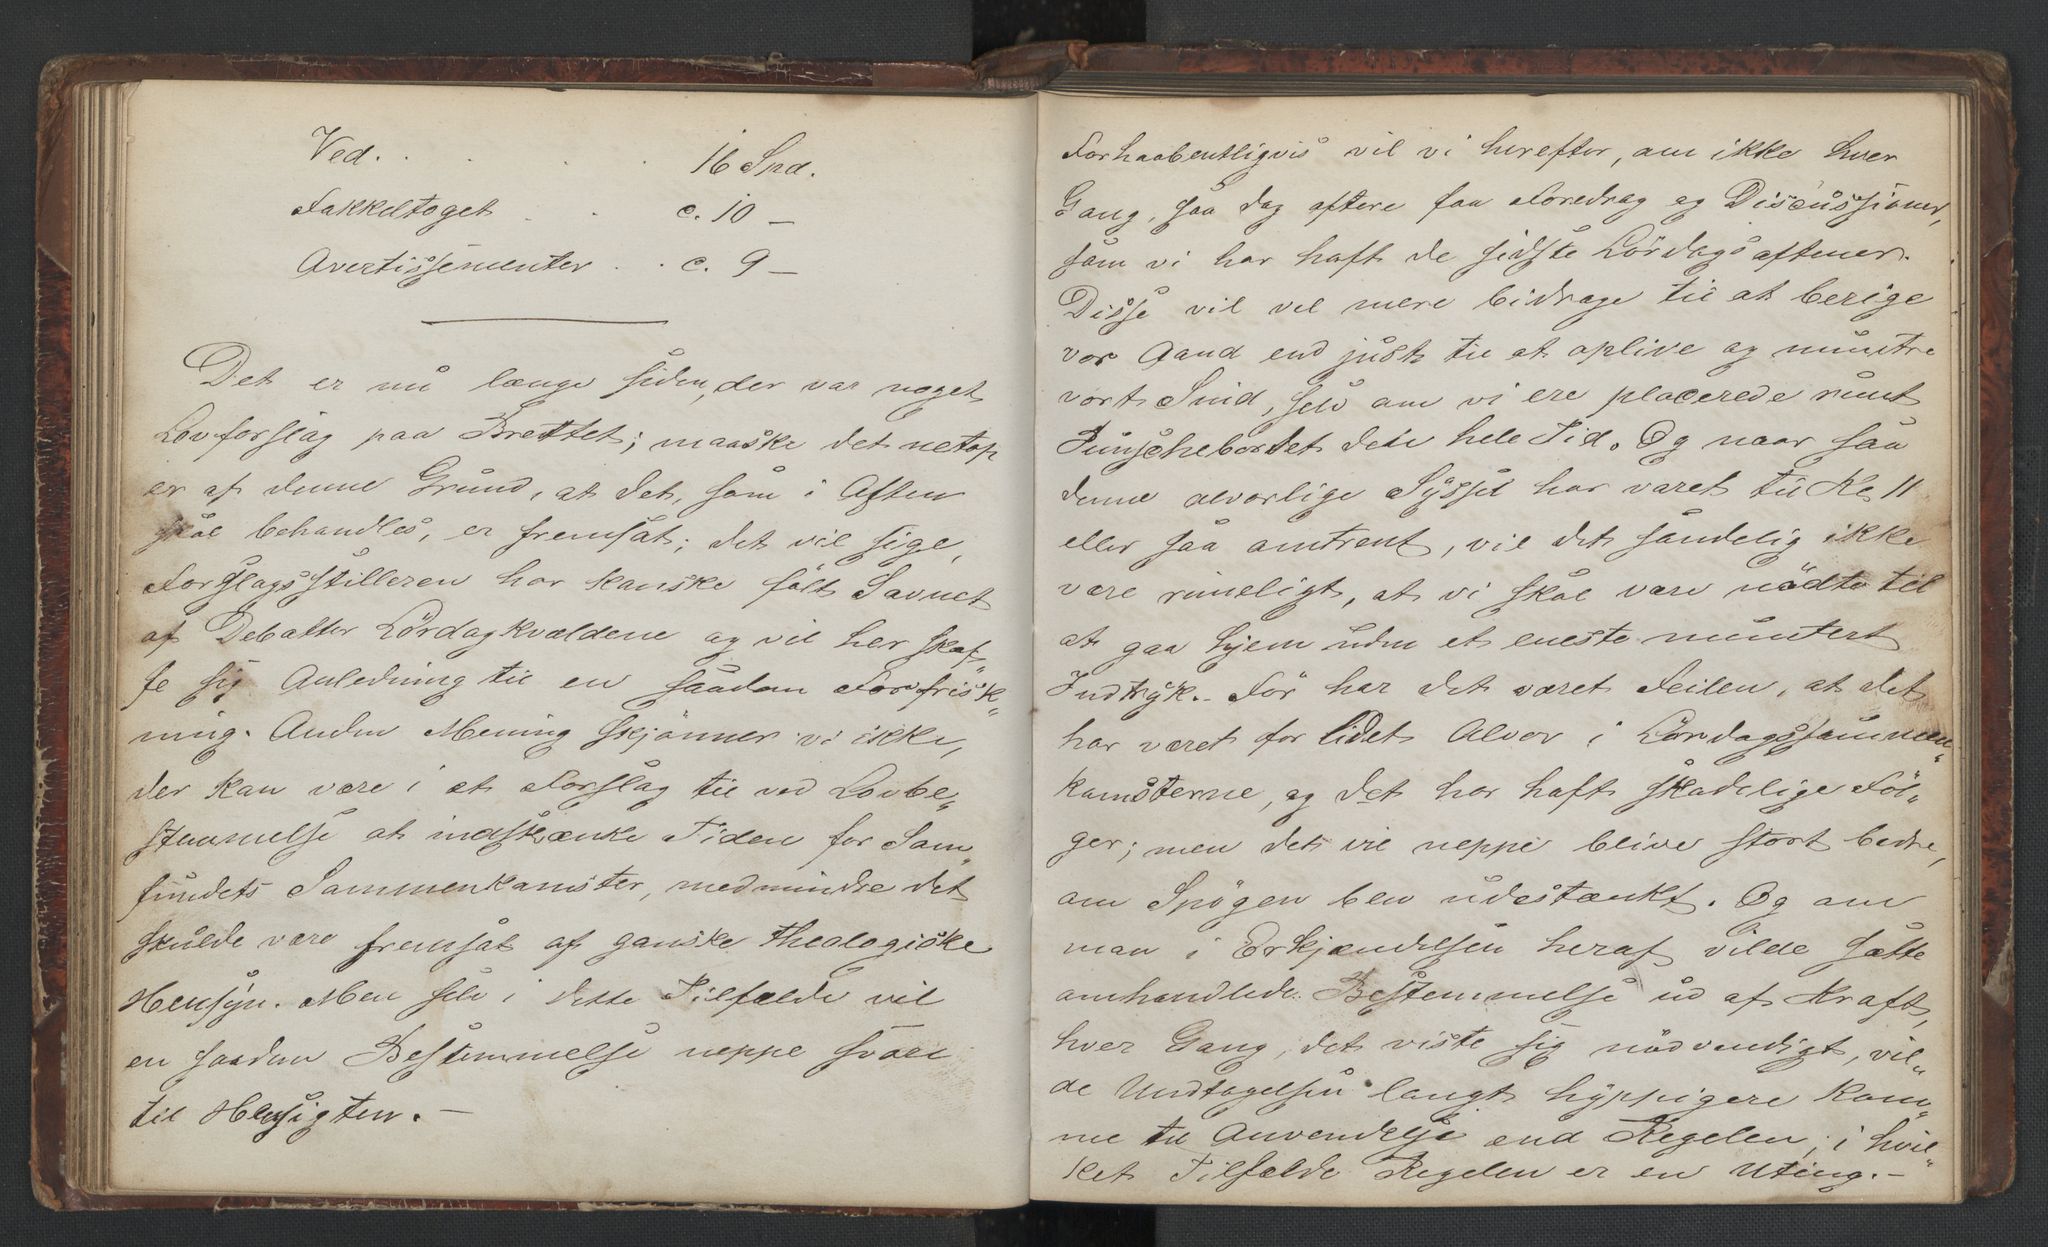 Ved. . . . . 16 Spd.
Fakkeltoget . . c. 10 —
Avertissementer . . c. 9 —
Det er nu længe siden, der var noget
Lovforslag paa Brettet; maaske det netop
er af denne Grund, at det, som i Aften
skal behandles, er fremsat; det vil sige,
Forslagsstilleren har kanske følt Savnet
af Debatter Lördagkvældene og vil her skaf„
fe sig Anledning til en saadan Forfrisk„
ning. Anden Mening skjönner vi ikke,
der kan være i et Forslag til ved Lovbe„
stemmelse at indskrænke Tiden for Sam„
fundets Sammenkomster, medmindre det
skulde være fremsat af ganske theologiske
Hensyn. Men selv i dette Tilfælde vil
en saadan Bestemmelse neppe svare
til Hensigten. —
Forhaabentligvis vil vi herefter, om ikke hver
Gang, saa dog oftere faa Foredrag og Discussioner,
som vi har haft de sidste Lördagsaftener.
Disse vil vel mere bidrage til at berige
vor Aand end just til at oplive og muntre
vort Sind, selv om vi ere placerede rundt
Punschebordet den hele Tid. Og naar saa
denne alvorlige Syssel har varet til Kl 11
eller saa omtrent, vil det sandelig ikke
være rimeligt, at vi skal være nödte til
at gaa hjem uden et eneste muntert
Indtryk. – För har det været Feilen, at det
har været for lidet Alvor i Lördagssammen„
komsterne, og det har haft skadelige Föl„
ger; men det vil neppe blive stort bedre,
om Spögen blev udestænkt. Og om
man i Erkjændelsen heraf vilde sætte
omhandlede Bestemmelse ud af Kraft,
hver Gang, det viste sig nödvendigt, vil„
de Undtagelsen langt hyppigere kom„
me til Anvendelse end Regelen, i hvil„
ket Tilfælde Regelen er en Uting. —